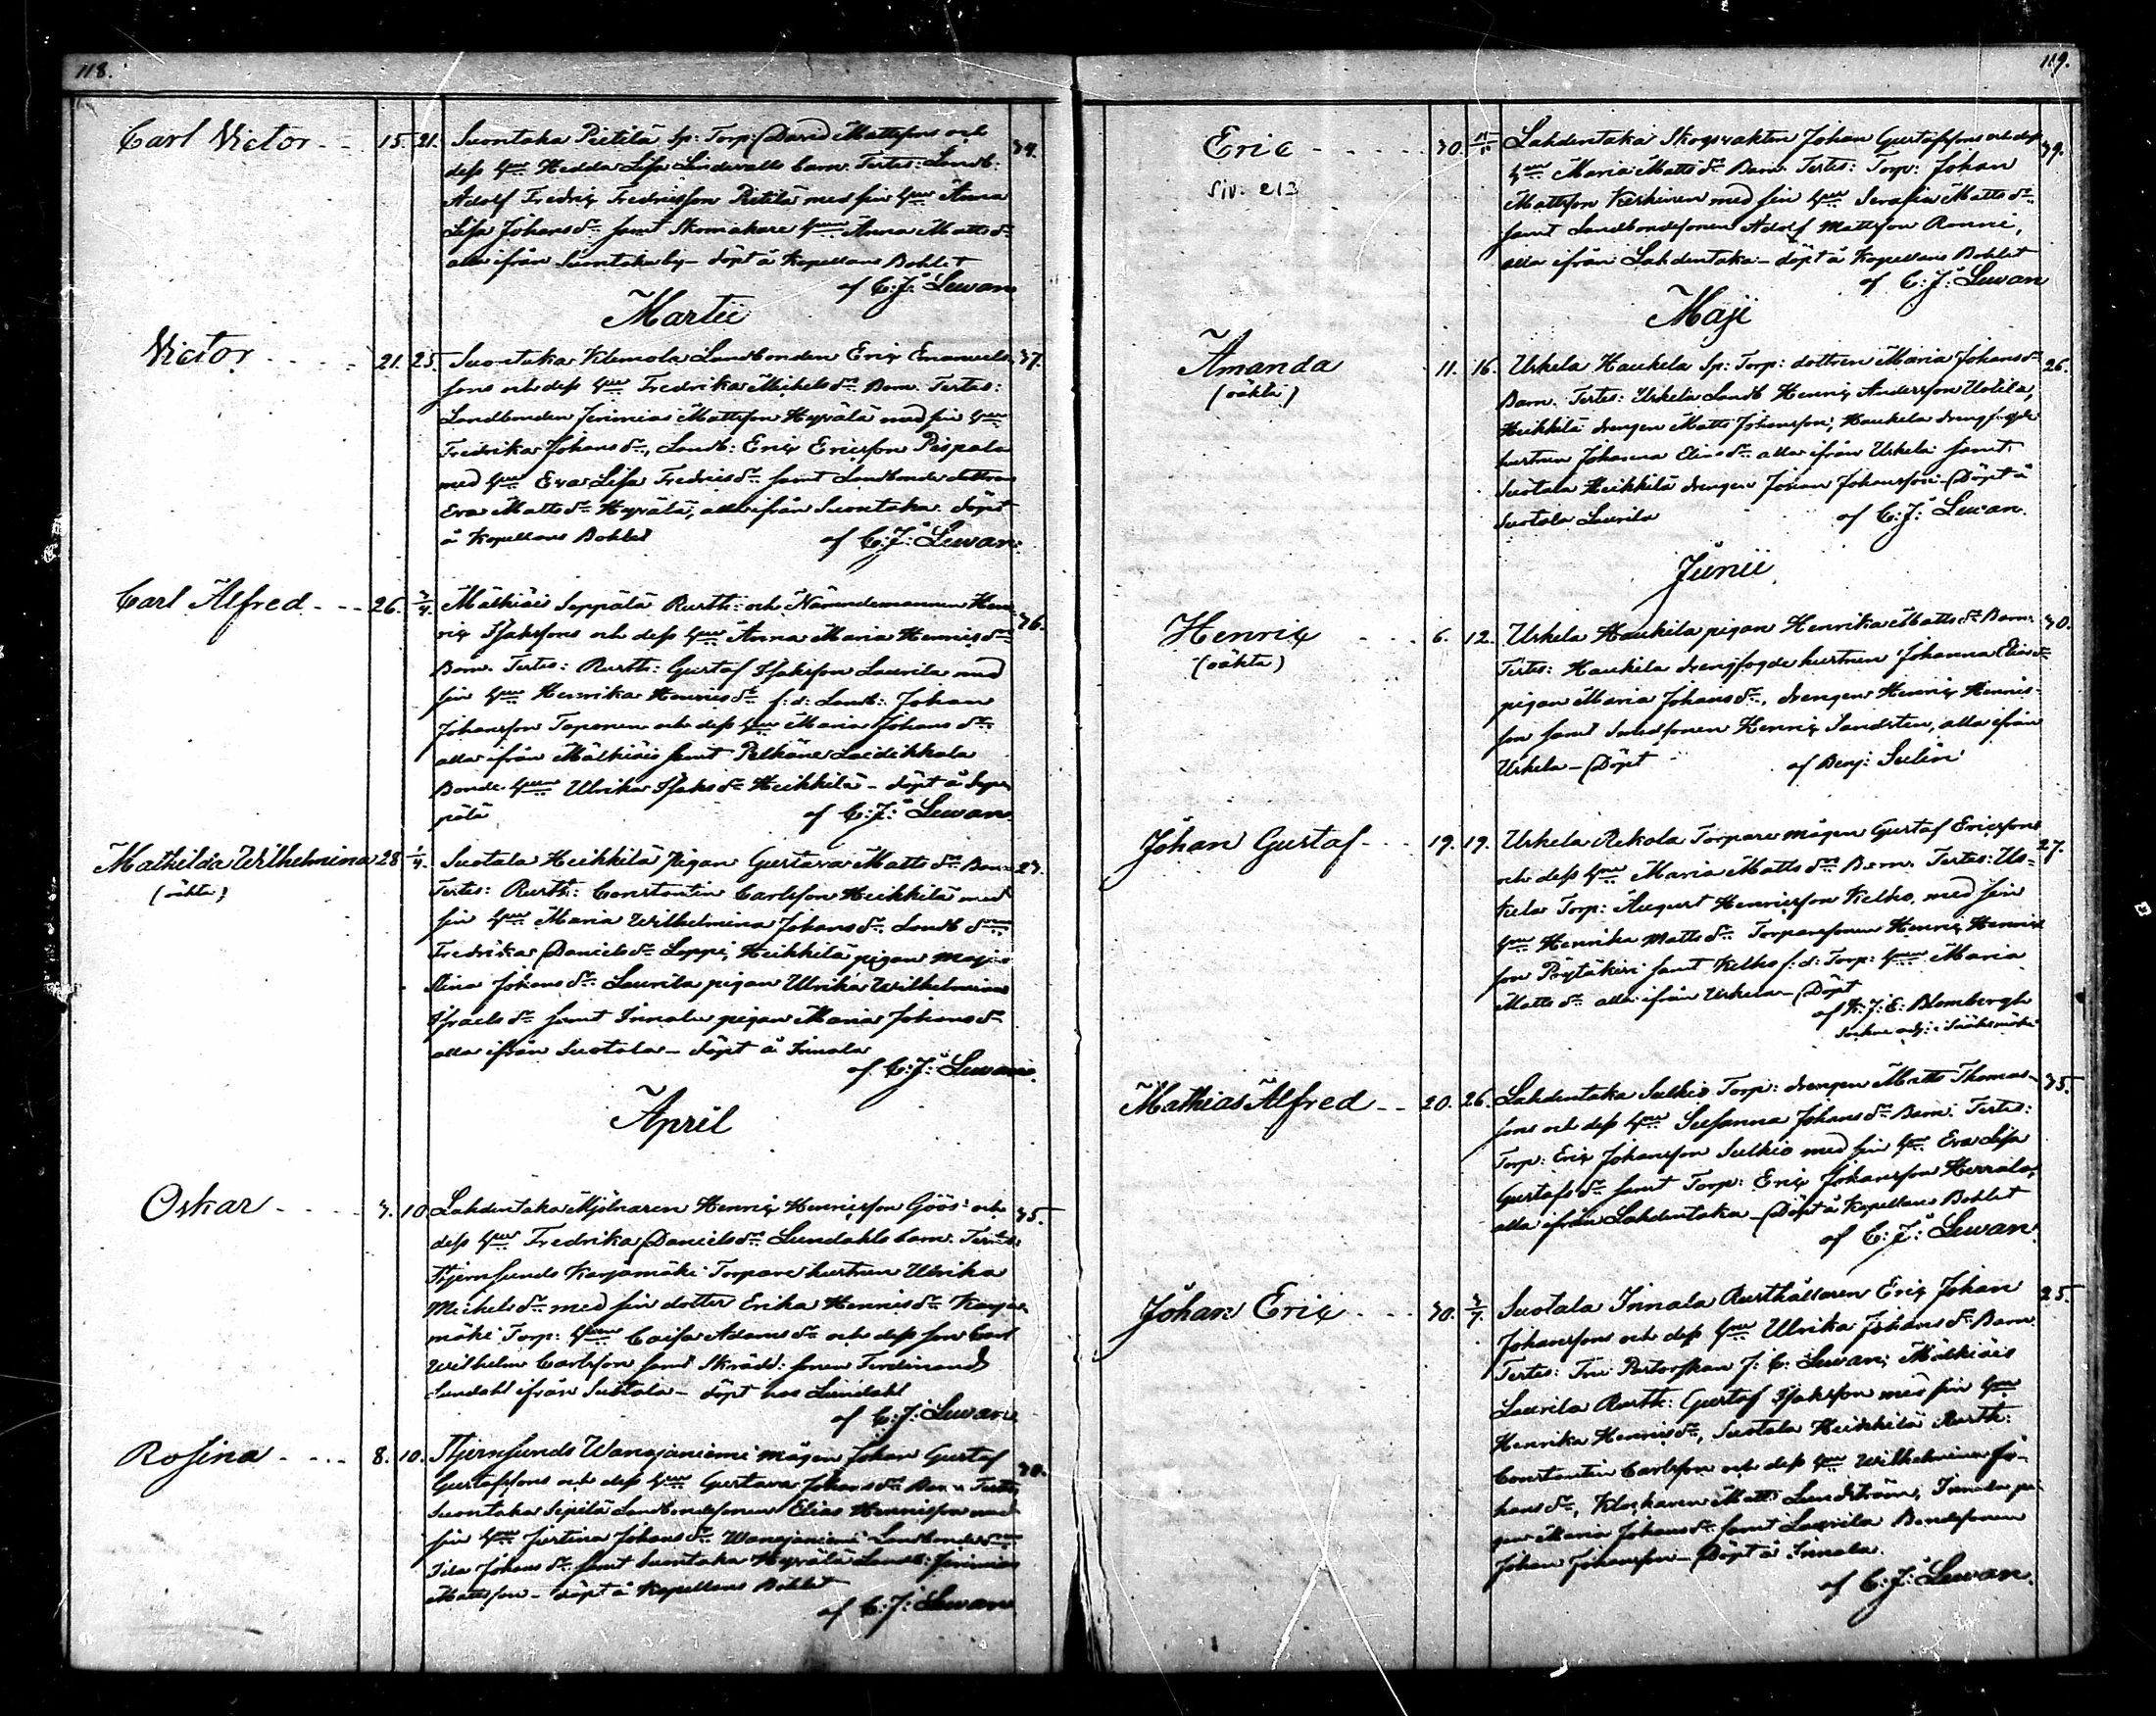 118.
Carl Victor - - 15. 21. Suontaka Pietilä Sp: Torp: David Mattssons och 34.
dess hru Hedda Lisa Lindevalls barn. Testes: Landb:
Adolf Fredrik Fredricsson Pietilä med sin hru Anna
Lisa Johans dr samt Skomakare hru Anna Matts dr
alla ifrån Suontaka by - döpt å Kapellans Bohlet
af C: J: Lewan
Martii
Victor - - - - 21. 25. Suontaka Klemola Landbonden Eric Emanuels 37.
sons och dess hru Fredrika Michels dr Barn. Testes:
Landbonden Jeremias Mattsson Hyrälä med sin hru
Fredrika Johans dr, Landb: Eric Ericsson Pispala
med hru Eva Lisa Fredrics dr samt Landbonde dottren
Eva Matts dr Hyrälä, alla ifrån Suontaka. döpt
å Kapellans Bohlet af C: J: Lewan.
Carl Alfred - - 26. 3/4. Mälkiäis Seppälä Rusth: och Nämndemannen Hen- 36.
ric Isakssons och dess hru Anna Maria Henrics dr
Barn. Testes: Rusth: Gustaf Isaksson Laurila med
sin hru Henrika Henrics dr f: d: Landb: Johan
Johansson Toponen och dess hru Maria Johans dr
alla ifrån Mälkiäis samt Pelkäne Laidikkala
Bonde hru Ulrika Isaks dr Heikkilä - döpt å Sep-
pälä af C: J: Lewan.
Mathilda Wilhelmina 28 1/4. Suotala Heikkilä Pigan Gustava Matts dr Barn 23.
(oäkta)
Testes: Rusth: Constantin Carlsson Heikkilä med
sin hru Maria Wilhelmina Johans dr Landb
Fredrika Daniels dr Loppi, Heikkilä pigan Maja
Stina Johans dr Laurila pigan Ulrika Wilhelmina
Israels dr samt Innala pigan Maria Johans dr
alla ifrån Suotala - döpt å Innala
af C: J: Lewan.
April
Oskar - - - - 3. 10. Lahdentaka Mjölnaren Henric Henricsson Göös och 35.
dess hru Fredrika Daniels dr Lundahls barn. Testes:
Stjernsunds Karjamäki Torpare hustrun Ulrika
Michels dr med sin dotter Erika Henrics dr Karja-
mäki Torp: hru Caisa Adams dr och dess son Carl
Wilhelm Carlsson samt Skrädd: sonen Ferdinand
Lundahl ifrån Suotala - döpt hos Lundahl
af C: J: Lewan
Rosina - - - - 8. 10. Stjernsunds Wanajaniemi mågen Johan Gustaf 30.
Gustafssons och dess hru Gustava Johans dr Barn Testes
Suontaka Sipilä Landbondesonen Elias Henricsson med
sin hru Justina Johans dr Wanajaniemi Landbonde
Johans dr samt Suontaka Hyrälä Landb: Jeremias
Mattsson - döpt å Kapellans Bohlet
af C: J: Lewan
119.
Eric - - - - - 30. Lahdentaka Skogvakten Johan Gustafssons och dess 39.
Siv. 213
hru Maria Matts dr Barn. Testes: Torp: Johan
Mattsson Keskinen med sin hru Serafia Matts dr
samt Landbondesonen Adolf Mattsson Ronni,
alla ifrån Lahdentaka - döpt å Kapellans Bohlet
af C: J: Lewan
Maji
Amanda 11. 16. Uskela Haukela Sp: Torp: dottren Maria Johans dr 26.
(oäkta)
Barn. Testes: Uskela Landb Henric Andersson Uotila,
Heikkilä drengen Matts Johansson, Haukela drengfogde
hustrun Johanna Elias dr alla ifrån Uskela samt
Suotala Heikkilä drengen Johan Johansson - Döpt å
Suotala Laurila af C: J: Lewan.
Junii
Henric - - - 6. 12. Uskela Haukela pigan Henrika Matts dr Barn. 30.
(oäkta)
Testes: Haukela drengfogde hustrun Johanna Elias dr
pigan Maria Johans dr, drengen Henric Henrics-
son samt Henric Sandsten, alla ifrån
Uskela - Döpt af Benj: Sulin
Johan Gustaf - - - 19. 19. Uskela Rekola Torpare mågen Gustaf Ericssons 27.
och dess hru Maria Matts dr Barn. Testes: Us-
kela Torp: August Henricsson Kelho, med sin
hru Henrika Matts dr Torparesonen Henric Henrics
son Pöytäkivi samt Kelho f: d: Torp: hru Maria
Matts dr alla ifrån Uskela - Döpt
af K: J: E: Blombergh
Sockne adj: i Sääksmäki
Mathias Alfred - - 20. 26. Lahdentaka Sulkio Torp: drengen Matts Thomas- 35.
sons och dess hru Susanna Johans dr Barn. Testes:
Torp: Eric Johansson Sulkio med sin hru Eva Lisa
Gustafs dr samt Torp: Eric Johansson Herrala,
alla ifrån Lahdentaka - Döpt å Kapellans Bohlet
af C: J: Lewan.
Johan Eric - - - 30. 3/7. Suotala Innala Rusthållaren Eric Johan 25.
Johanssons och dess hru Ulrika Johans dr Barn.
Testes: Fru Pastorskan J: C: Lewan; Mälkiäis
Laurila Rusth: Gustaf Isaksson med sin hru
Henrika Henrics dr, Suotala Heikkilä Rusth:
Constantin Carlsson och dess hru Wilhelmina Jo-
hans dr, Klockaren Matts Lundström, Innala pi-
gan Maria Johans dr samt Laurila Bondesonen
Johan Johansson - Döpt å Innala.
af C: J: Lewan.